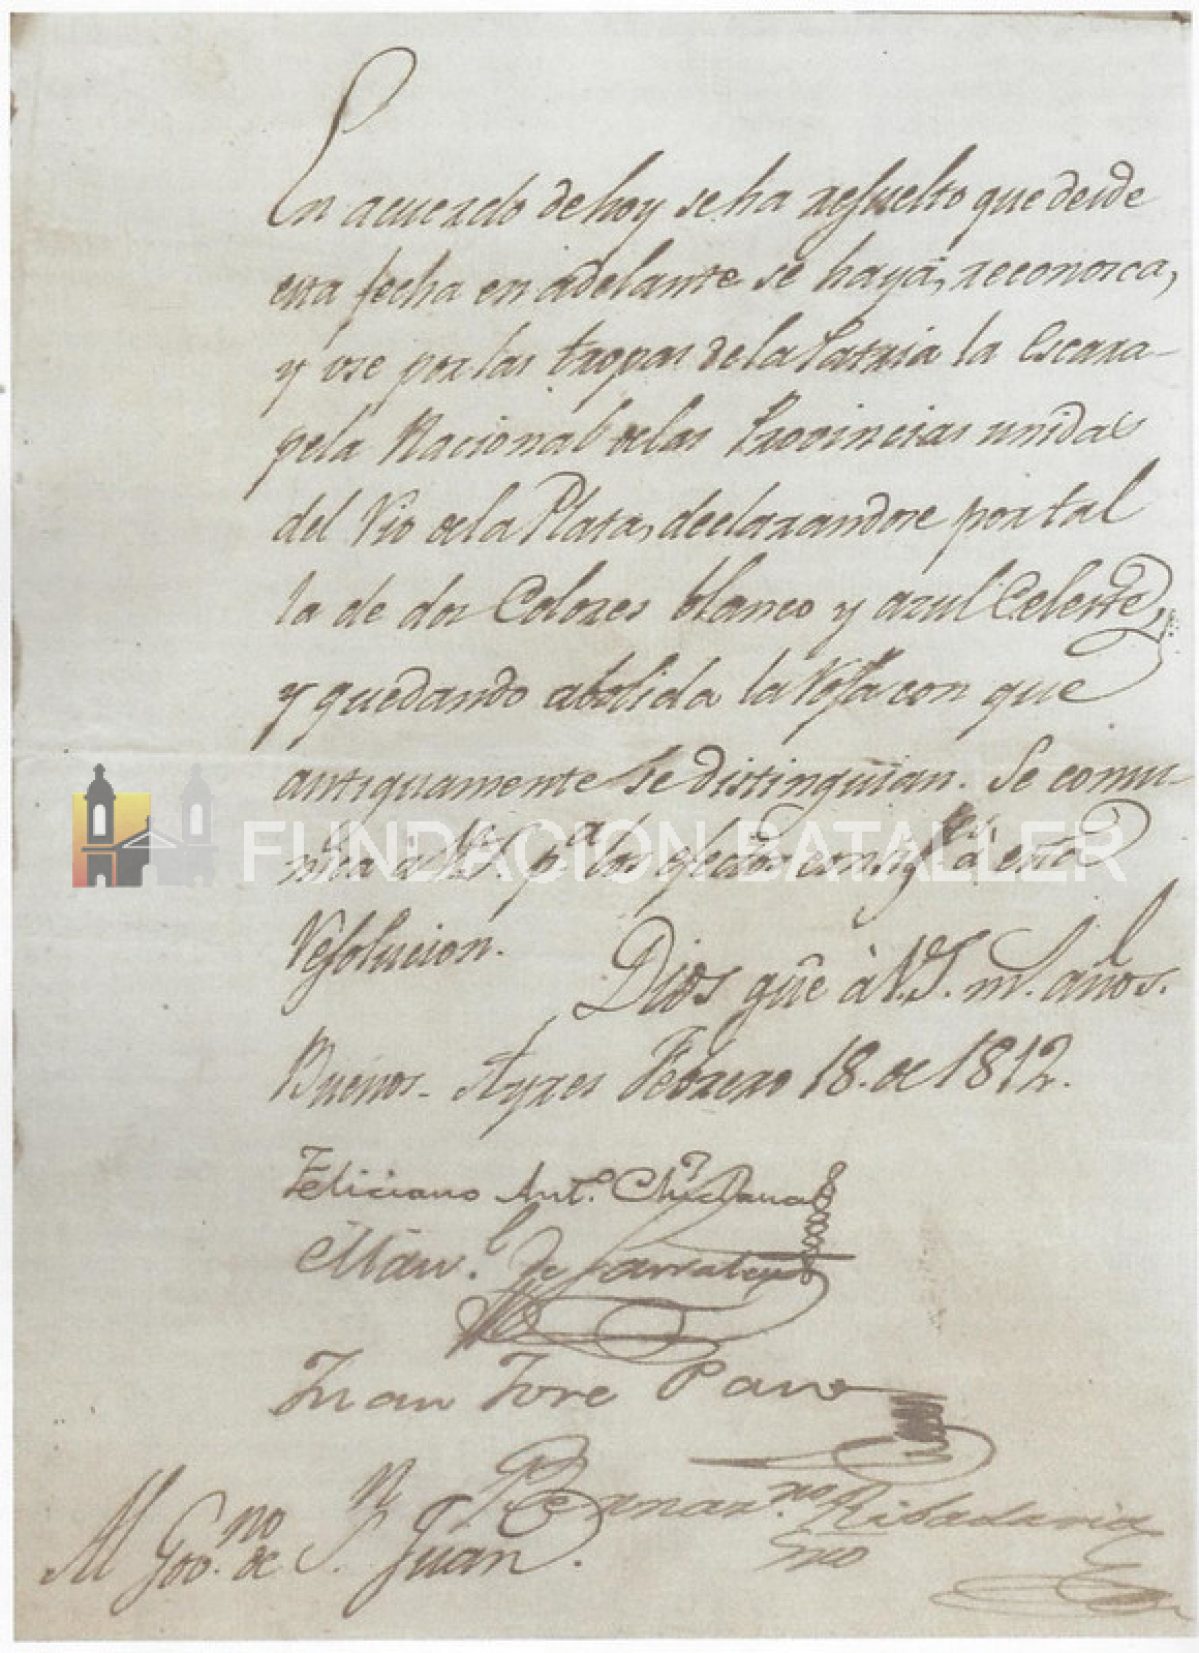 En acuerdo de hoy se ha resuelto que desde
esta fecha en adelante se haya, reconosca,
y use por las tropas de la Patria la Escara-
pela Nacional de las Provincias unidas
del Rio de la Plata, declarandose por tal
la de dos Colores blanco y azul Celeste,
y quedando abolida la roja con que
antiguamente se distinguian. Se comu-
nica a V.S. pa. los efectos consigtes. á esta
Resolucion.
Dios gue. à V.S. ms. años.
Buenos-Ayres Febrero 18. de 1812.
Feliciano Anto. Chiclana
Manl. de Sarratea
Juan Jose Paso
Bernarno. Ribadavia
Srio
Al Govno. de Sn. Juan.
FUNDACION BATALLER